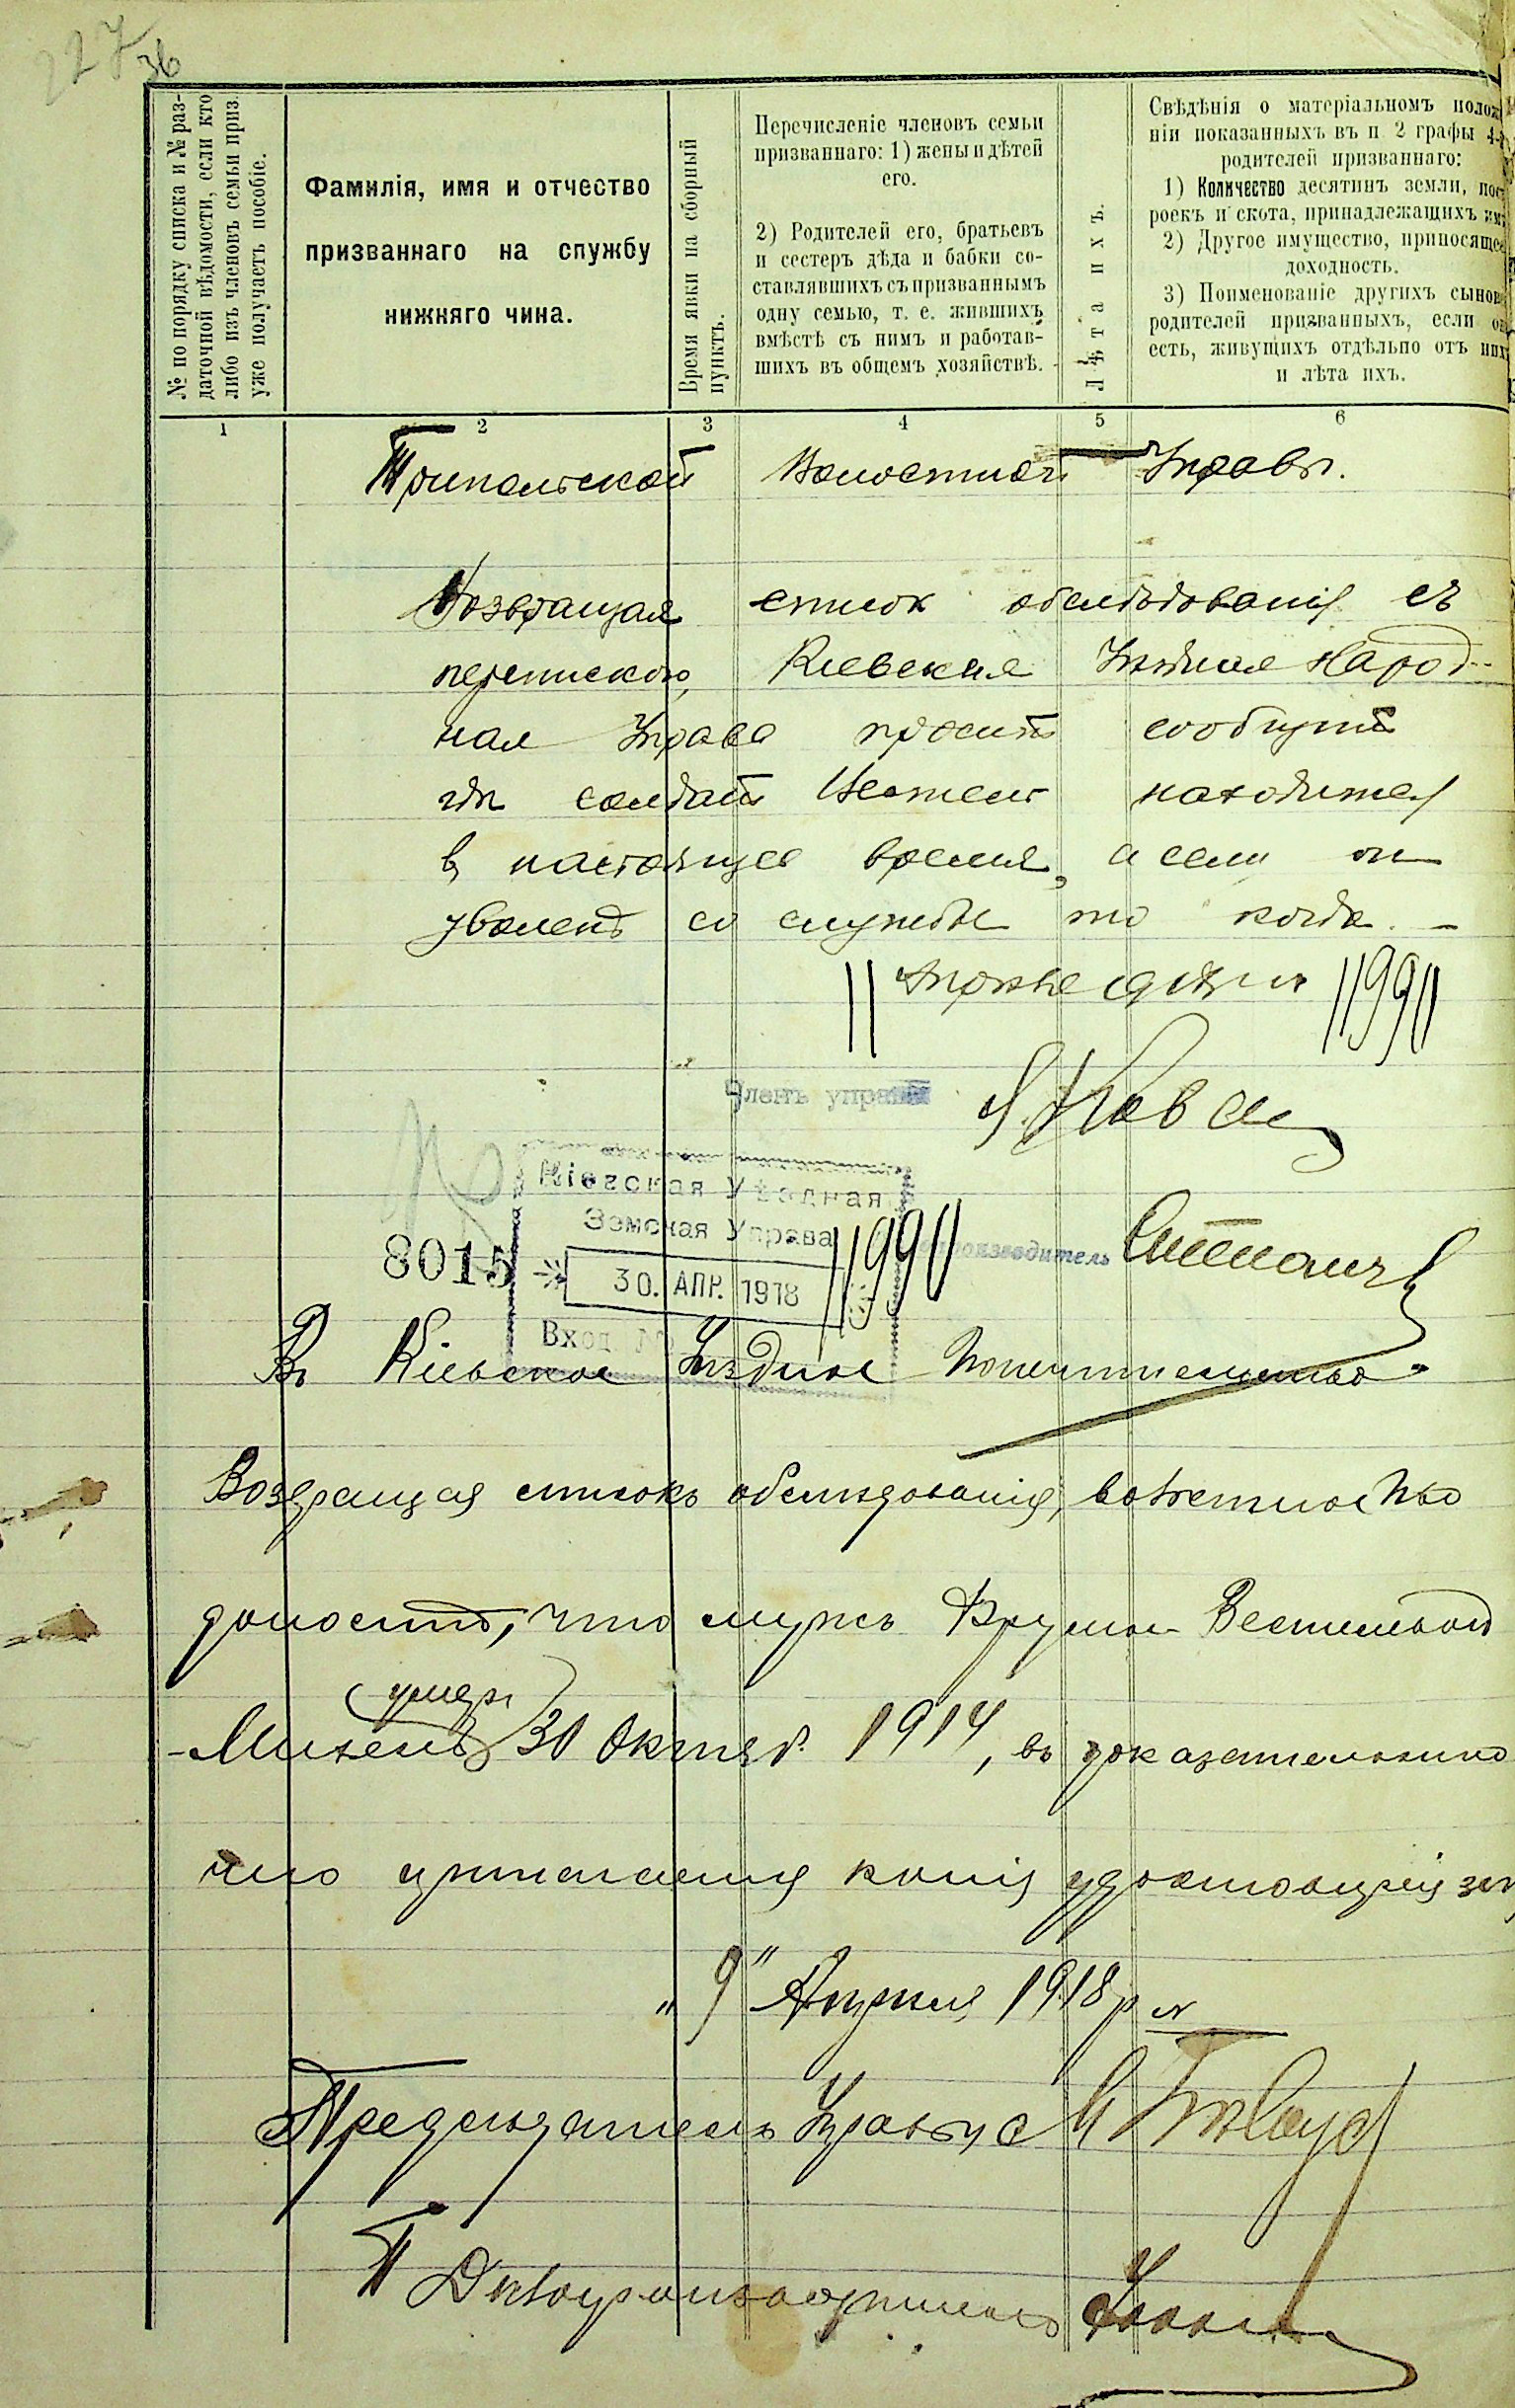 227
36
№ по порядку списка и № раз-
даточной вѣдомости, если кто
либо изъ членовъ семьи приз.
уже получаетъ пособіе.
Фамилія, имя и отчество
призваннаго на службу
нижняго чина.
Время явки на сборный
пунктъ.
Перечисленіе членовъ семьи
призваннаго: 1) жены и дѣтей
его.
2) Родителей его, братьевъ
и сестеръ дѣда и бабки со-
ставлявшихъ съ призваннымъ
одну семью, т. е. жившихъ
вмѣстѣ съ нимъ и работав-
шихъ въ общемъ хозяйствѣ.
Лѣта ихъ.
Свѣдѣнія о матеріальномъ полож
ніи показанныхъ въ п 2 графы 4-
родителей призваннаго:
1) Количество десятинъ земли, пос
роекъ и скота, принадлежащихъ им
2) Другое имущество, приносящее
доходность.
3) Поименованіе другихъ сынов
родителей призванныхъ, если о
есть, живущихъ отдѣльно отъ них
и лѣта ихъ.
1 2 3 4 5 6
Трипольской Волостной Управѣ.
Возвращая список обслѣдованія съ
перепискою, Киевская Уѣздная Народ-
ная Управа проситъ сообщить
гдѣ солдатъ находится
в настоящее время, а если он
уволенъ со службы то когда. -
Членъ управы
8015
Кіевская Уѣздная
Земская Управа
30. АПР. 1918
Вход. №
оизводитель
Въ Кіевское Уѣздное Попечительство
Возвращая списокъ обслѣдованія, волостность
доноситъ, что мужъ
умеръ
30 Октяб. 1914, въ доказательство
чего прилагается копія
„9" Апреля 1918 р
Председатель Управы
Дѣлопроизводитель